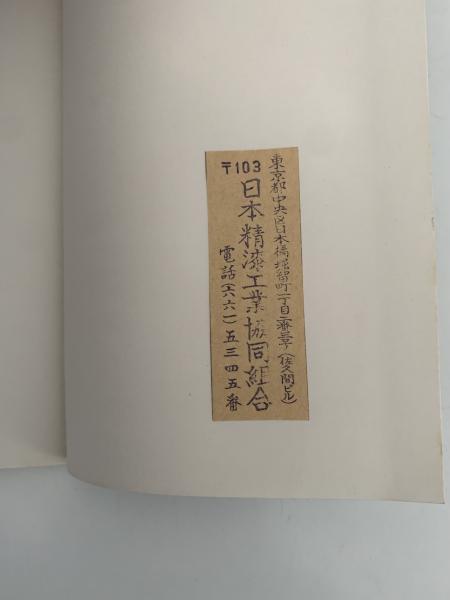 東京都中央区日本橋堀留町一丁目二番三号(佐久間ビル)
〒103
日本精漆工業協同組合
電話(六六一)五三四五番